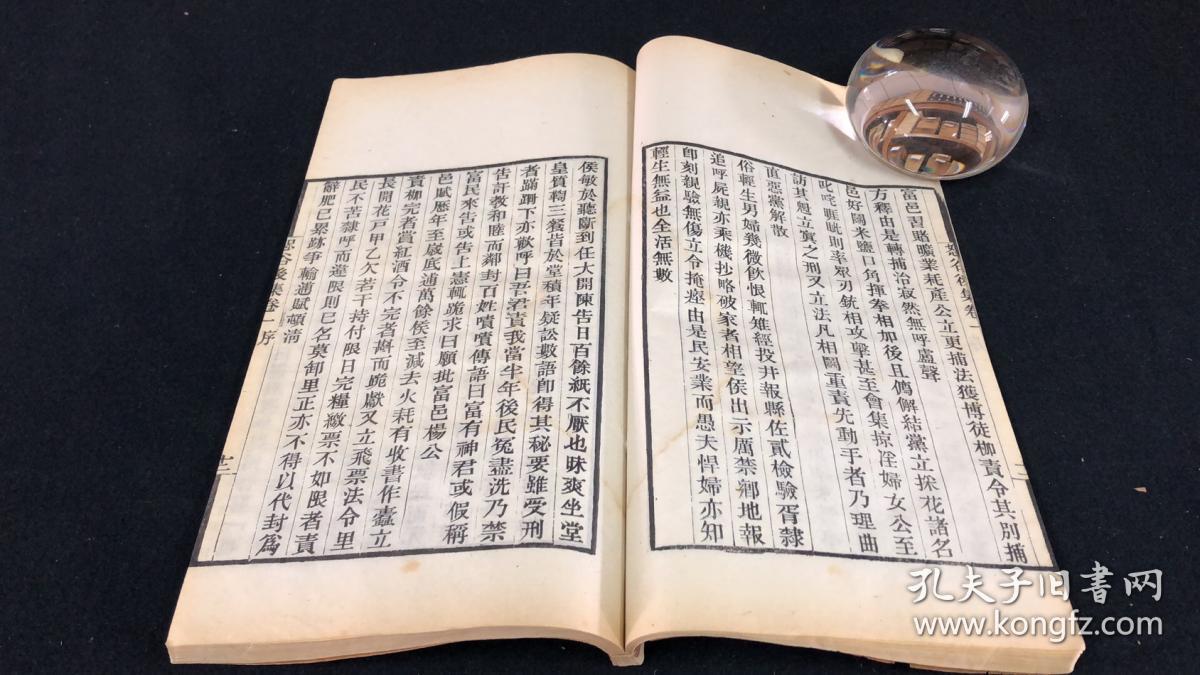 富邑習賭曠業耗產公立更捕法獲博徒枷責令其別捕
方釋由是轉捕治寂然無呼盧聲
邑好鬪米鹽口角揮拳相加後且傳解結黨立採花諸名
此咤睚眦則率眾刃銃相攻擊甚至會集掠淫婦女公至
訪其魁立寘之刑又立法凡相鬪重責先動手者乃理曲
直惡黨解散
俗輕生男婦幾微飲恨輒雉經投井報縣佐貳檢驗胥隸
追呼屍親亦乘機抄略破家者相望侯出示厲禁鄉地報
即刻親驗無傷立令掩瘞由是民安業而愚夫悍婦亦知
輕生無益也全活無數
侯敏於聽斷到任大開陳告日百餘紙不厭也昧爽坐堂
皇質鞫三餐皆於堂積年疑訟數語即得其秘要雖受刑
者蹣跚下亦歡呼曰吾君責我當半年後民冤盡洗乃禁
告訐教和睦而鄰封百姓嘖嘖傳語曰富有神君或假稱
富民來告或告上憲輒跪求曰願批富邑楊公
邑賦歷年至歲底逋萬餘侯至減去火耗有收書作蠹立
責枷完者賞紅酒令不完者搿而跪獻又立飛票法令里
長開花戶甲乙欠若干持付限日完糧繳票不如限者責
民不苦隸呼而違限則已名莫卸里正亦不得以代封為
辭肥已累跡爭輸逋賦頓清
後集卷一 序
孔夫子旧书网
www.kongfz.com